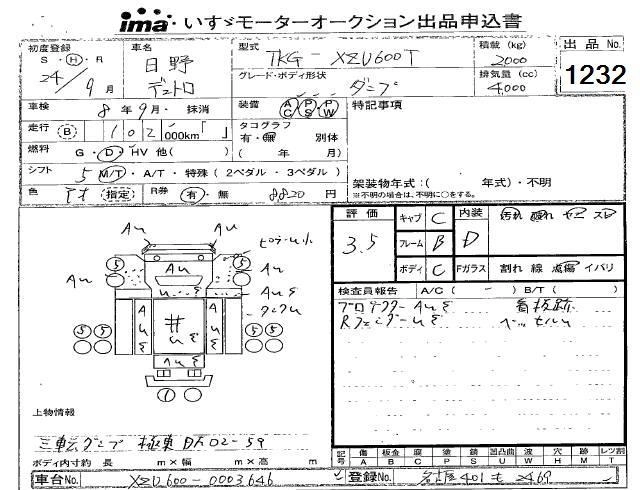 ima いすゞモーターオークション出品申込書
初度登録
S・H・R
24/9月
車名
日野
デュトロ
型式 TKG-XZU600T
グレード・ボディ形状
ダンプ
積載(kg)
2000
排気量(cc)
4,000
出品No.
1232
車検 8年9月・抹消
装備 AC PS PW
特記事項
走行 (B) 102,000km「 」
タコグラフ
有・無 別体
( 年 月)
燃料 G・D・HV 他( )
シフト 5 M/T・A/T・特殊(2ペダル・3ペダル)
架装物年式:( 年式)・不明
※不明の場合は、不明に○をする。
色 アオ (指定) R券 有・無 8820円
評価 3.5
キャブ C
フレーム B
ボディ C
内装 D
Fガラス 割れ 線 点傷 イバリ
検査員報告 A/C( - ) B/T( )
プロテクターAuε 看板跡
RフェンダーUε
AU
AU
AU
AU
AU
AUε
AUε
井
ε
5 5
5 5
5 5 5 5
上物情報
三転ダンプ 極東 DD02-59
ボディ内寸約 長 m×幅 m×高 m
記号 傷A 板金B 腐C 塗P 錆S 凹凸曲U 波W 穴H 跡M レツ割T
車台No. XZU600-0003646
登録No. 名古屋 401 も 2469